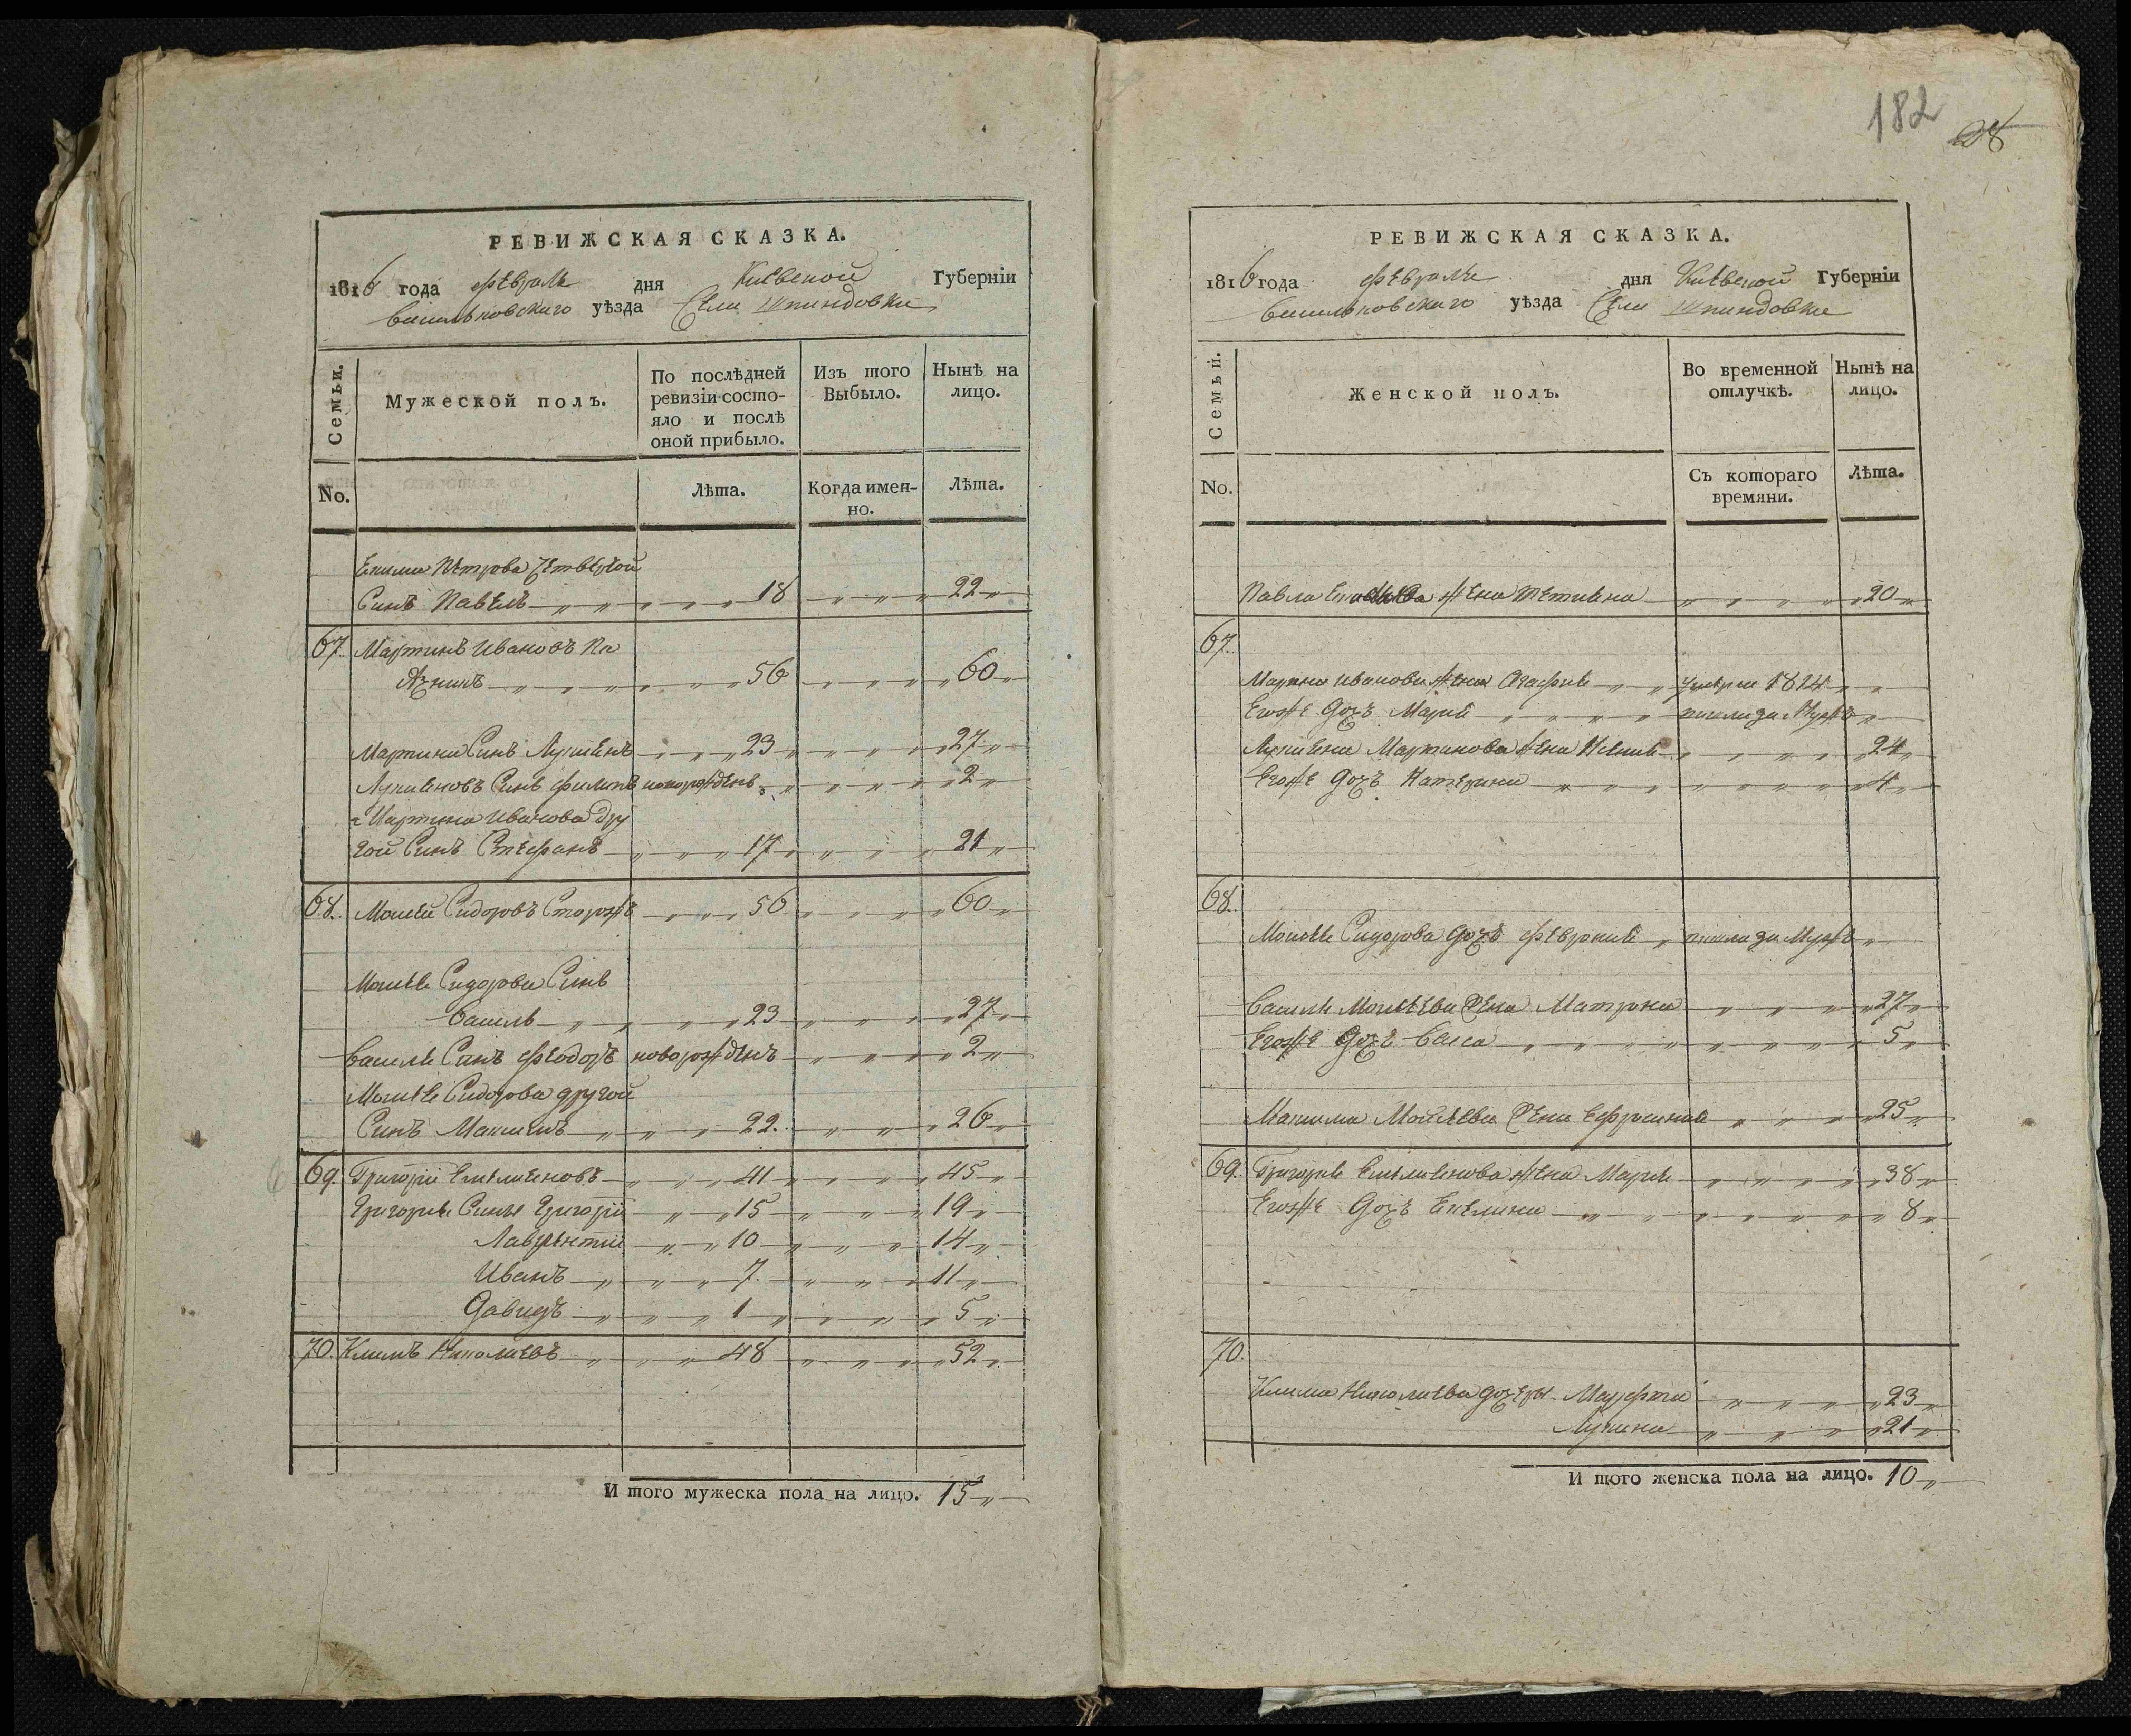 РЕВИЖСКАЯ СКАЗКА.
1816 года февраля дня Киевской Губерніи
Васильковского уѣзда Села Шпиндовки
Семьи.
Мужеской полъ.
По послѣдней ревизіи состо-
яло и послѣ
оной прибыло.
Изъ того
Выбыло.
Нынѣ на
лицо.
No.
Лѣта.
Когда имен-
но.
Лѣта.
Екима Петрова Четвертой
Синъ Павелъ 18 22
67. Мартинъ Ивановъ
56 60
Мартина Синъ Лукиянъ 23 27
Лукияновъ Синъ Филипъ новорожденъ 2
Мартина Иванова дру
гой Синъ Стефанъ 17 21
68. Моисей Сидоровъ Сторожъ 56 60
Моисея Сидорова Синъ
Василь 23 27
Василя Синъ Феодоръ новорожденъ 2
Моисея Сидорова другой
Синъ Максимъ 22 26
69. Григорій Емелиеновъ 41 45
Григория Сины Григорій 15 19
Лаврентій 10 14
Иванъ 7 11
Давидъ 1 5
70. Климъ Николаевъ 48 52
И того мужеска пола на лицо. 15
182
28
РЕВИЖСКАЯ СКАЗКА.
1816 года февраля дня Киевской Губерніи
Васильковского уѣзда Села Шпиндовки
Семьи.
Женской полъ.
Во временной
отлучкѣ.
Нынѣ на
лицо.
No.
Съ котораго
времяни.
Лѣта.
Павла Екимова жена Тетиена 20
67.
Мартина Иванова жена Агафия умерла 1814
Егожъ дочъ Мария
Лукиена Мартинова жена Ксения 24
Егожъ дочъ Катерина 4
68.
Моисея Сидорова дочъ Феврония
Василя Моисеева жена Матрона 27
Егожъ дочъ Васса 5
Максима Моисеева жена Ефросиния 25
69. Григория Емелиенова жена Мария 38
Егожъ дочъ 8
70.
Клима Николаева дочеры Марфта 23
Лукина 21
И того женска пола на лицо. 10